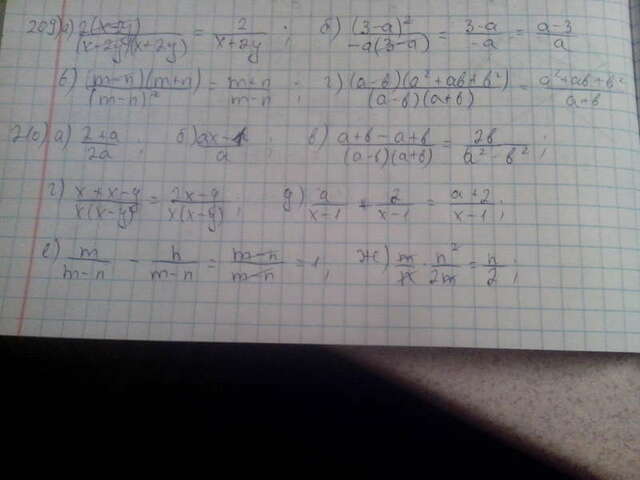 209 а) 2(x-2y)/(x-2y)(x+2y) = 2/x+2y ; б) (3-a)²/-a(3-a) = 3-a/-a = a-3/a
в) (m-n)(m+n)/(m-n)² = m+n/m-n ; г) (a-b)(a²+ab+b²)/(a-b)(a+b) = a²+ab+b²/a+b
210) а) 2+a/2a ; б) ax-1/a ; в) a+b-a+b/(a-b)(a+b) = 2b/a²-b² ;
г) x+x-y/x(x-y) = 2x-y/x(x-y) ; д) a/x-1 + 2/x-1 = a+2/x-1 ;
е) m/m-n - n/m-n = m-n/m-n = 1 ; ж) m/n · n²/2m = n/2 ;